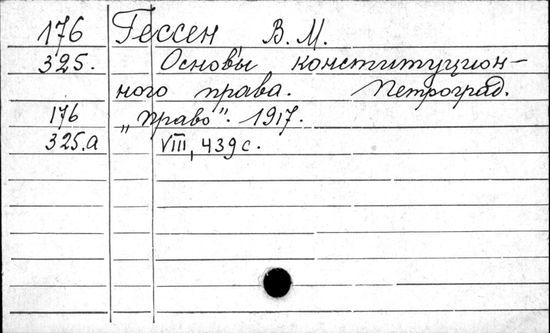 176 Гессен В. М.
325. Основы конституцион-
ного права. Петроград.
176 „Право". 1917.
325.а VIII, 439 с.